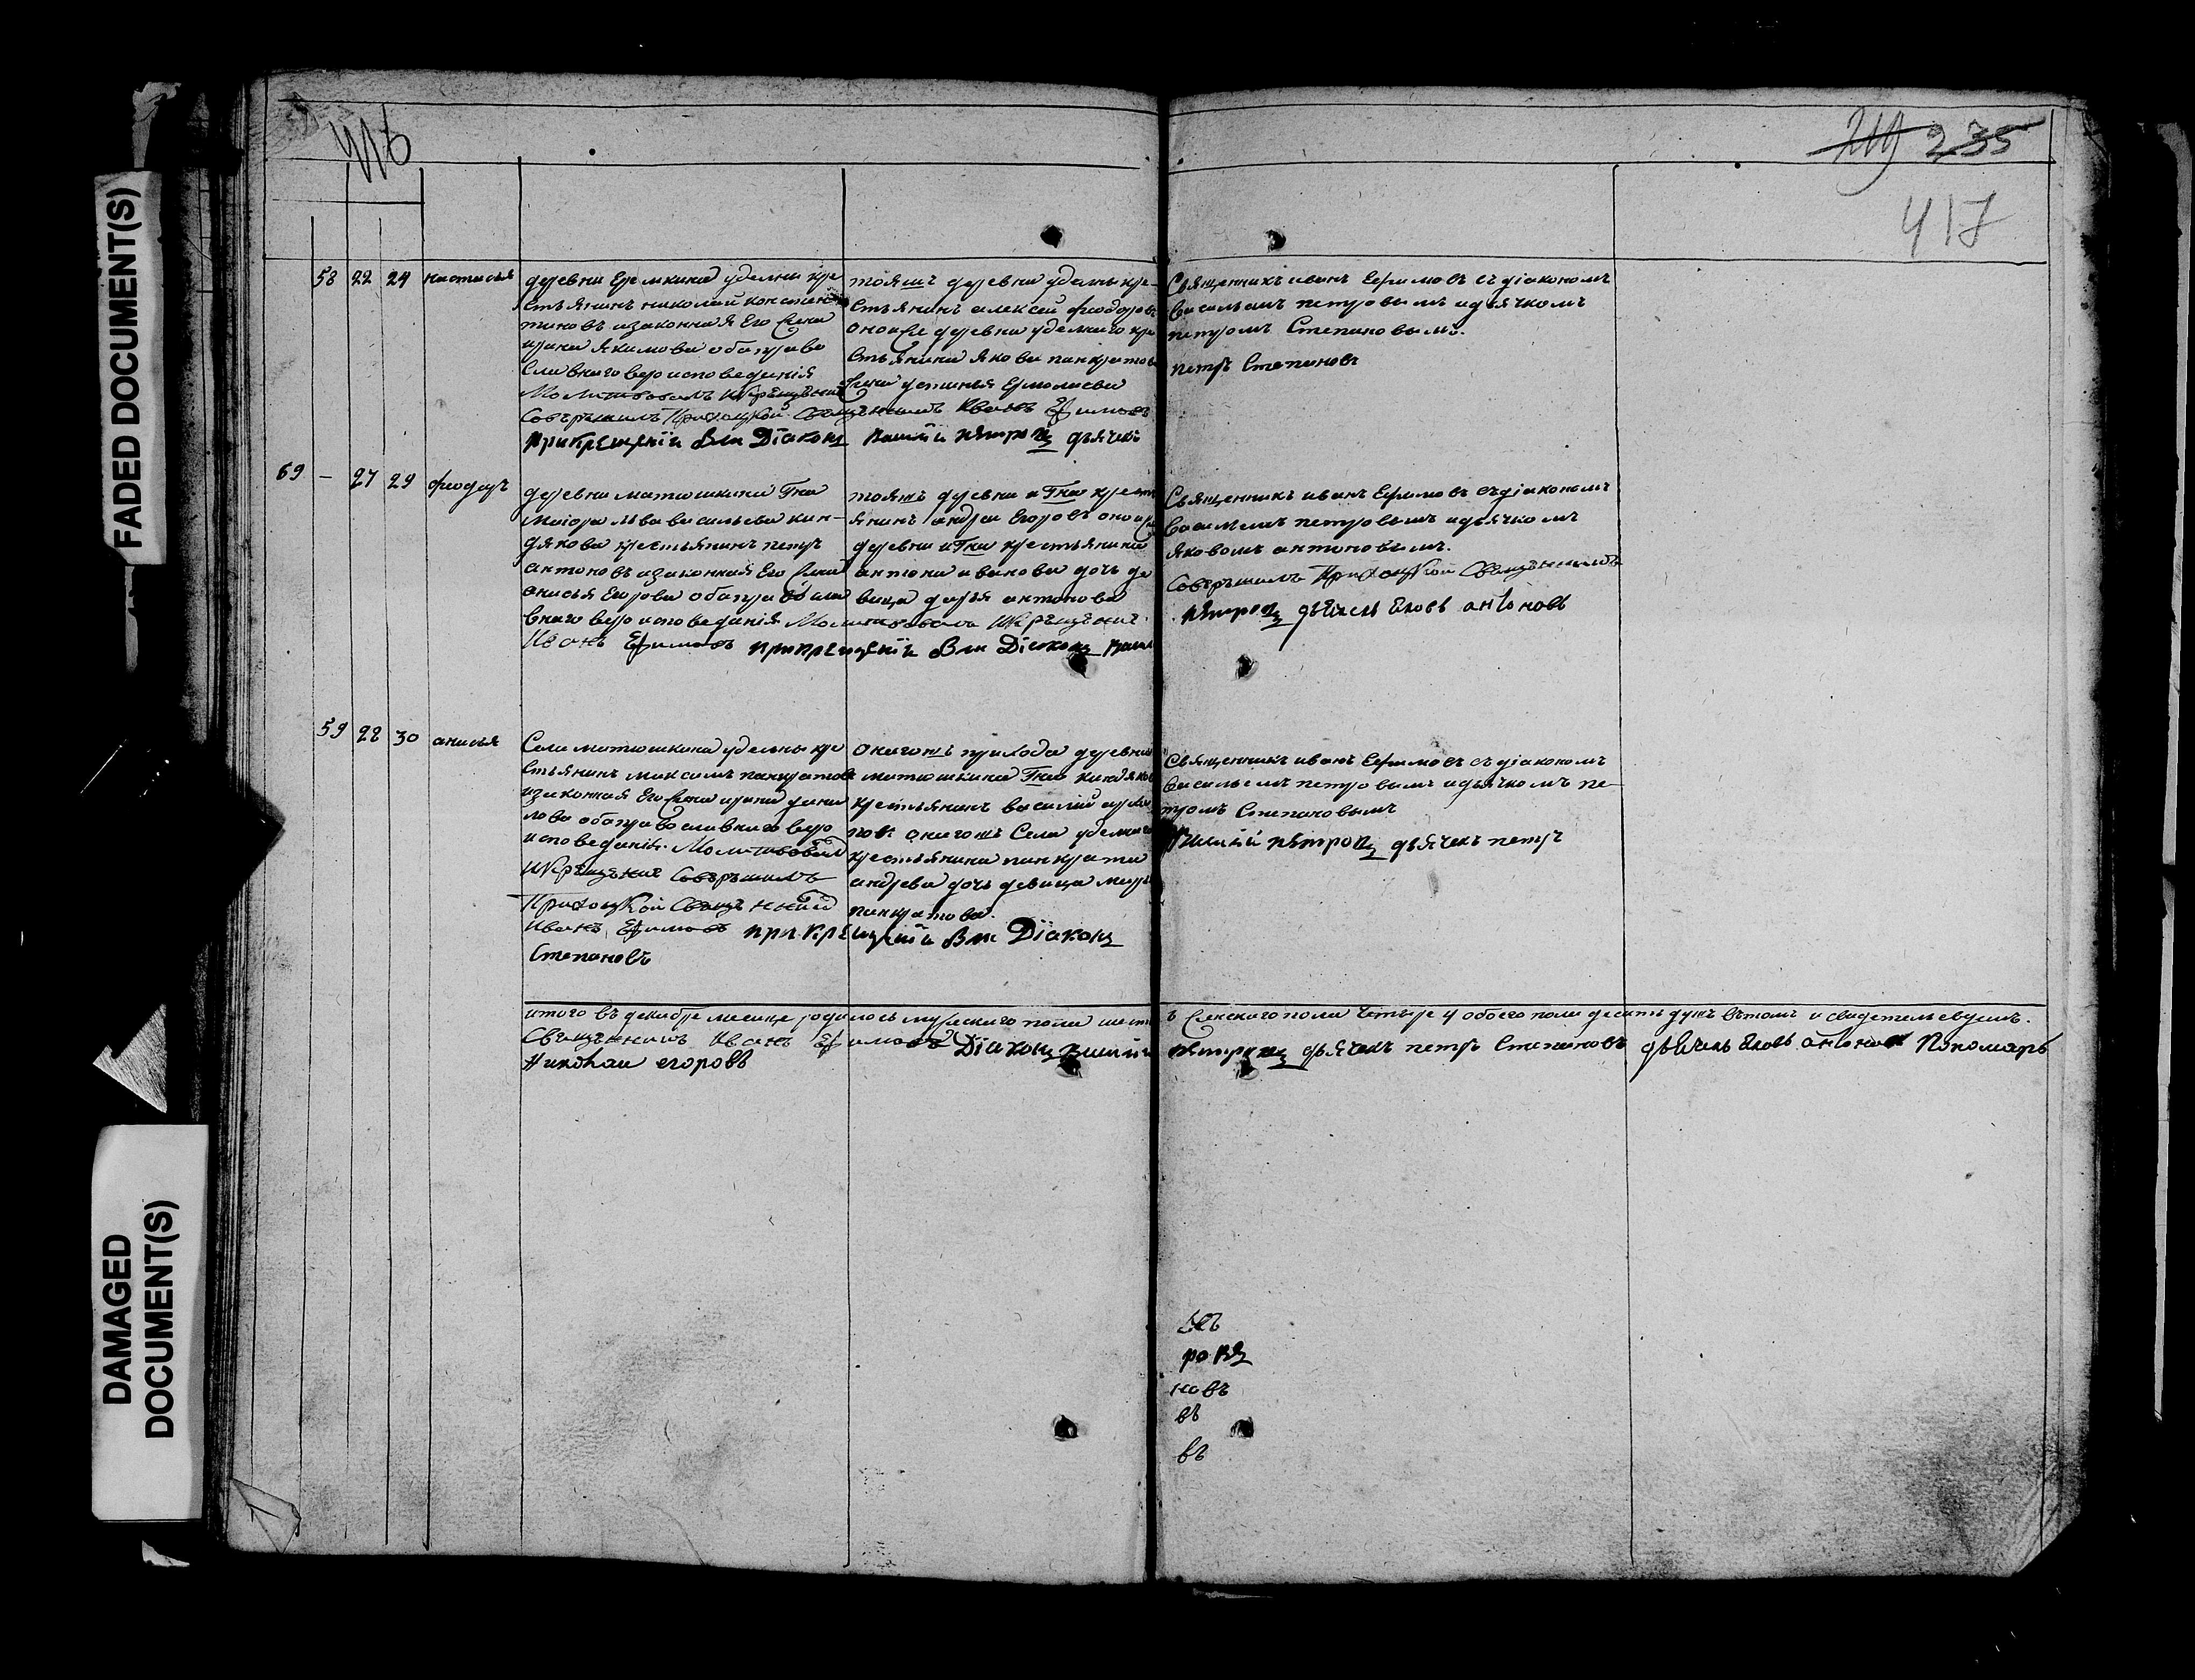 FADED DOCUMENT(S)
DAMAGED DOCUMENT(S)
416
219 235
417
58 22 24 настасья
деревни Еремкина удельны кре
стьянинъ николай констан
тиновъ изаконная Его жена
ирина Якимова оба право
славнаго вероисповедания
Молитвовалъ И Крещение
Совершилъ Приходской Священникъ Иванъ Ефимовъ
при крещении был Диаконъ Василий петровъ дьячекъ
тояжъ деревни удельны кре
стьянинъ алексей феодоровъ
оноиже деревни удельнаго кре
стьянина Якова панкратова
жена устинья Ермолаева
Священникъ иванъ Ефимовъ съ діакономъ
васильемъ петровымъ идьячкомъ
петромъ Степановымъ.
петръ Степановъ
69 — 27 29 феодоръ
деревни матюшкина Гна
маіора льва васильева кин-
дякова крестьянинъ петръ
антоновъ изаконная Его жена
анисья Егорова оба правосла
внаго вероисповеданія Молитвовалъ И Крещение
Иванъ Ефимовъ при крещении был Диаконъ Васил
тояжъ деревни и Гна крест
янинъ андрей Егоровъ оноиже
деревни и Гна крестьянина
антона иванова дочь де
вица дарья антонова
Священникъ иванъ Ефимовъ съ діакономъ
васильемъ петровымъ идьячкомъ
Яковомъ антоновымъ.
Совершилъ Приходской Священникъ
петровъ дьячекъ Яковъ антоновъ
59 28 30 анисья
Села матюшкина удельны кре
стьянинъ максимъ панкратовъ
изаконная Его жена ирина дани
лова оба православнаго веро
исповеданія. Молитвовалъ
И Крещение Совершилъ
Приходской Священникъ
Иванъ Ефимовъ при крещении был Диаконъ
Степановъ
онагожъ прихода деревни
матюшкина Гна киндякова
крестьянинъ василий
онагожъ Села удельнаго
крестьянина панкрата
андреева дочь девица марья
панкратова.
Священникъ иванъ Ефимовъ съ діакономъ
васильемъ петровымъ идьячкомъ пе
тромъ Степановымъ
Василий петровъ дьячекъ петръ
итого въ декабре месяце родилось мужескаго пола шесть женскаго пола четыре у обоего пола десять душъ вътомъ и свидетельствуемъ.
Священникъ Иванъ Ефимовъ Диаконъ Василий петровъ дьячекъ петръ Степановъ дьячекъ Яковъ антоновъ Пономарь
Николаи егоровъ
ровъ
новъ
въ
въ